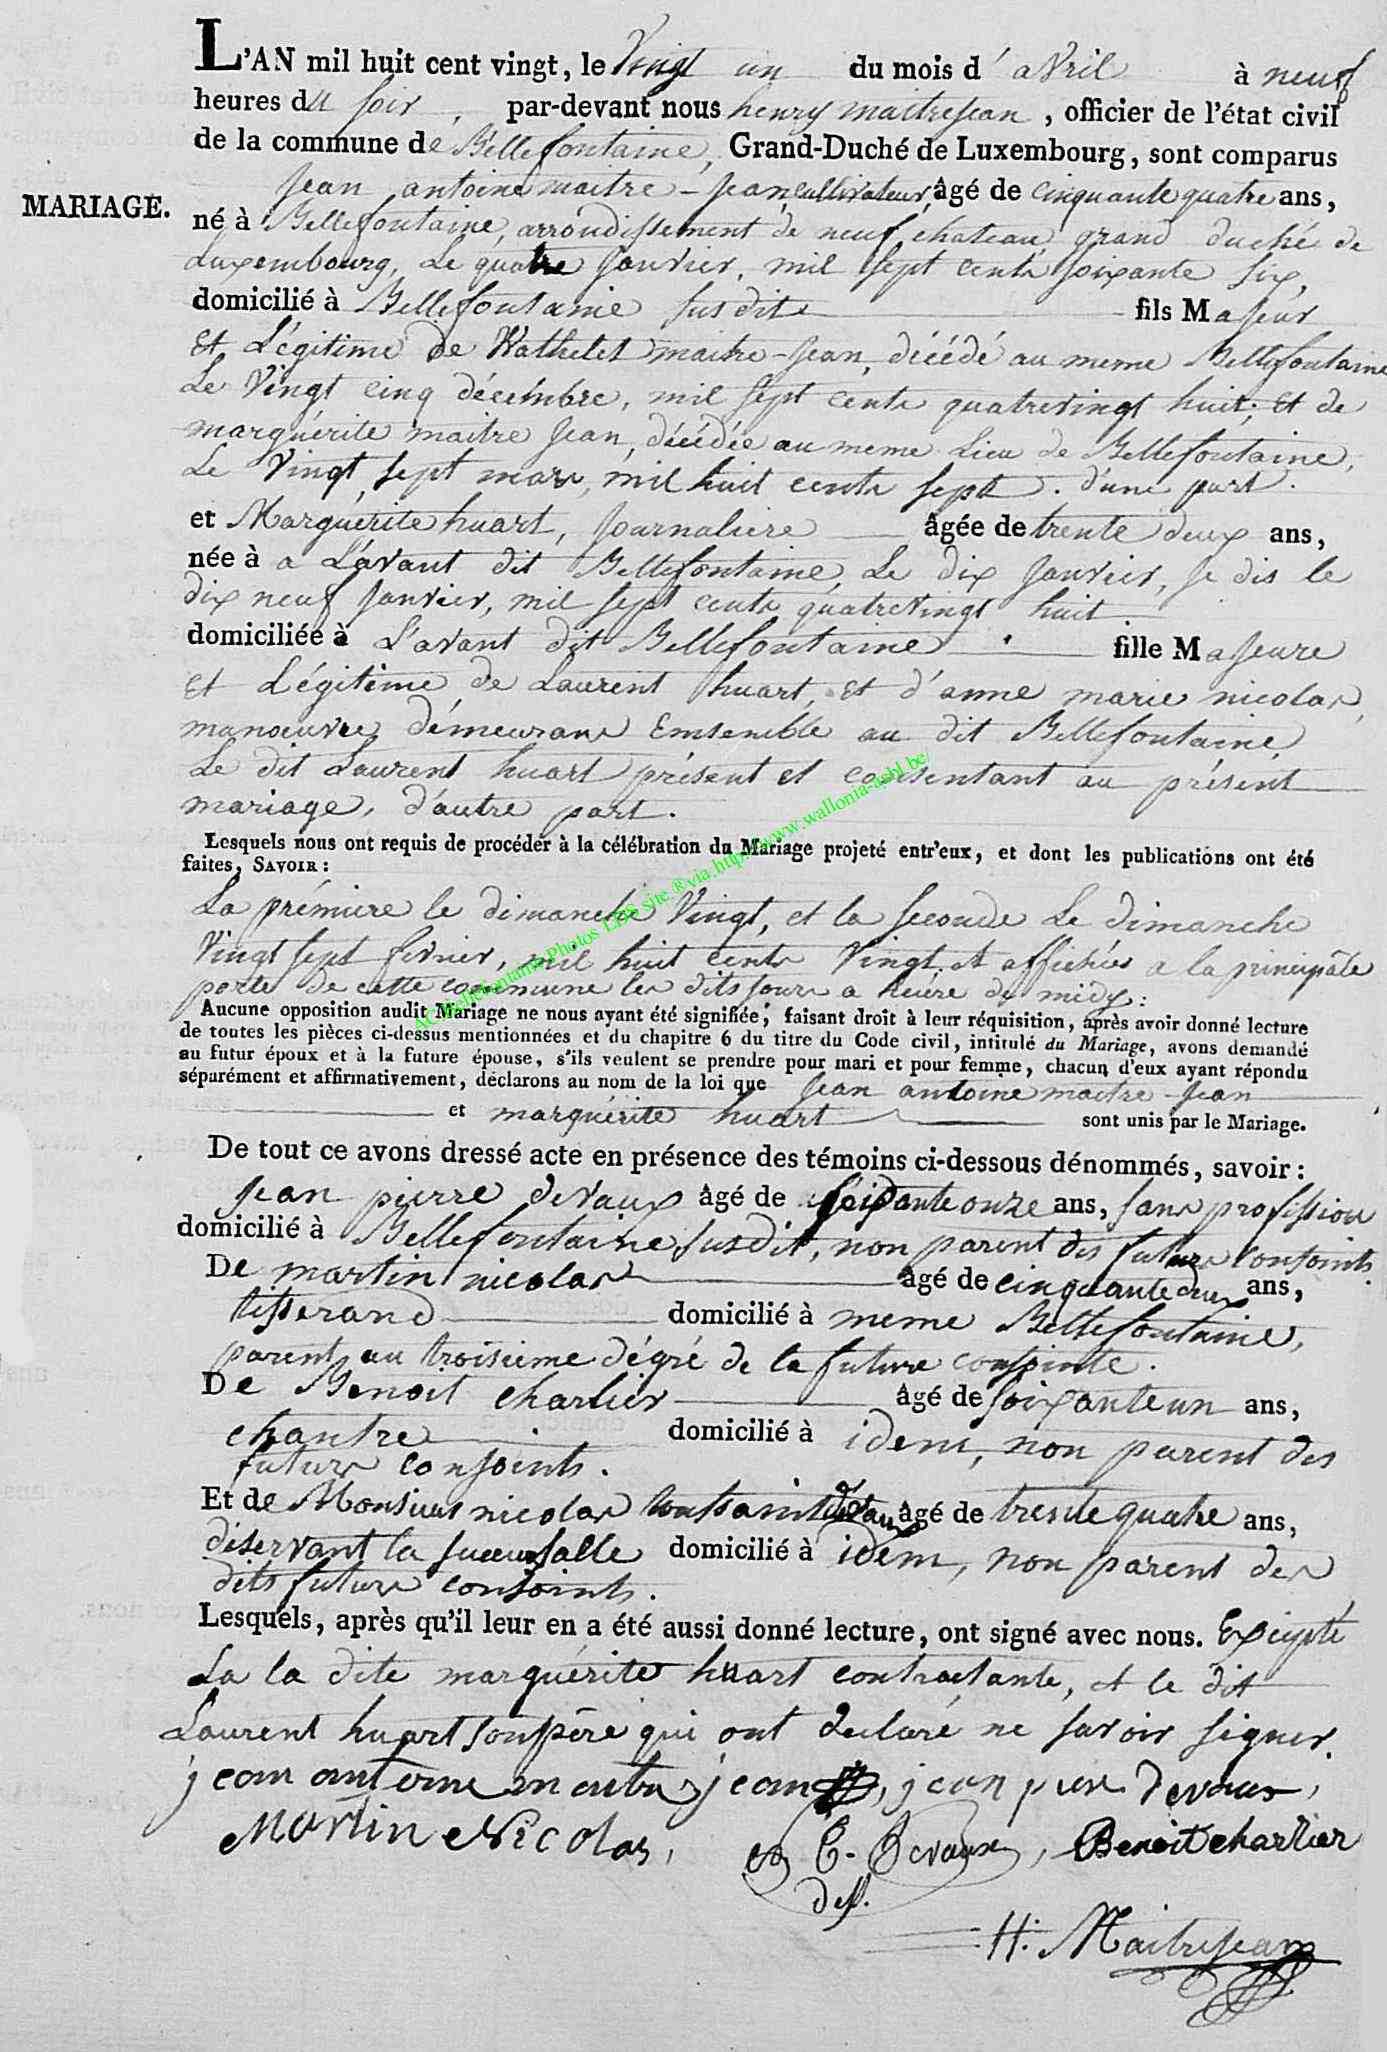 L'AN mil huit cent vingt, le Vingt un du mois d'avril à neuf
heures du soir, par-devant nous henry maitrejean, officier de l'état civil
de la commune de Bellefontaine, Grand-Duché de Luxembourg, sont comparus
jean antoine maitre-jean, cultivateur, âgé de cinquante quatre ans,
MARIAGE.
né à Bellefontaine, arrondissement de neufchateau, grand duché de
Luxembourg, Le quatre janvier, mil sept cents soixante six,
domicilié à Bellefontaine susdit fils Majeur
et Légitime de Wathelet maitre-jean, décédé au meme Bellefontaine
Le Vingt cinq décembre, mil sept cents quatrevingt huit; et de
marguérite maitre jean, décédée au meme Lieu de Bellefontaine,
Le Vingt sept mars, mil huit cents sept. d'une part.
et Marguérite huart, journaliere âgée de trente deux ans,
née à a L'avant dit Bellefontaine, Le dix janvier, je dis le
dix neuf janvier, mil sept cents quatrevingt huit
domiciliée à L'avant dit Bellefontaine fille Majeure
et Légitime de Laurent huart, et d'anne marie nicolas,
manœuvre, démeurans Emsemble au dit Bellefontaine
Le dit Laurent huart présent et consentant au présent
mariage, d'autre part.
Lesquels nous ont requis de procéder à la célébration du Mariage projeté entr'eux, et dont les publications ont été
faites, SAVOIR:
La prémiere le dimanche Vingt, et la seconde Le dimanche
Vingt sept fevrier, mil huit cents Vingt et affichées a la principale
porte de cette commune les dits jours a heure de midy:
Aucune opposition audit Mariage ne nous ayant été signifiée; faisant droit à leur réquisition, après avoir donné lecture
de toutes les pièces ci-dessus mentionnées et du chapitre 6 du titre du Code civil, intitulé du Mariage, avons demandé
au futur époux et à la future épouse, s'ils veulent se prendre pour mari et pour femme, chacun d'eux ayant répondu
séparément et affirmativement, déclarons au nom de la loi que jean antoine maitre-jean
et marguérite huart sont unis par le Mariage.
De tout ce avons dressé acte en présence des témoins ci-dessous dénommés, savoir:
jean pierre devaux âgé de soixante onze ans, sans profession
domicilié à Bellefontaine susdit, non parent des futurs conjoints
De martin nicolas âgé de cinquante deux ans,
tisserand domicilié à meme Bellefontaine,
parent au troisieme dégré de la future conjointe.
De Benoit charlier âgé de soixante un ans,
chantre domicilié à idem, non parent des
futurs conjoints.
Et de Monsieur nicolas toussaint devaux âgé de trente quatre ans,
déservant la succursalle domicilié à idem, non parent des
dits futurs conjoints.
Lesquels, après qu'il leur en a été aussi donné lecture, ont signé avec nous. Excepté
La la dite marguérite huart contractante, et le dit
Laurent huart son père qui ont declaré ne savoir signer.
jean antoine maitre jean, jean pierre devaux,
Martin Nicolas, T. Devaux, Benoit charlier
dess.
H. Maitrejean